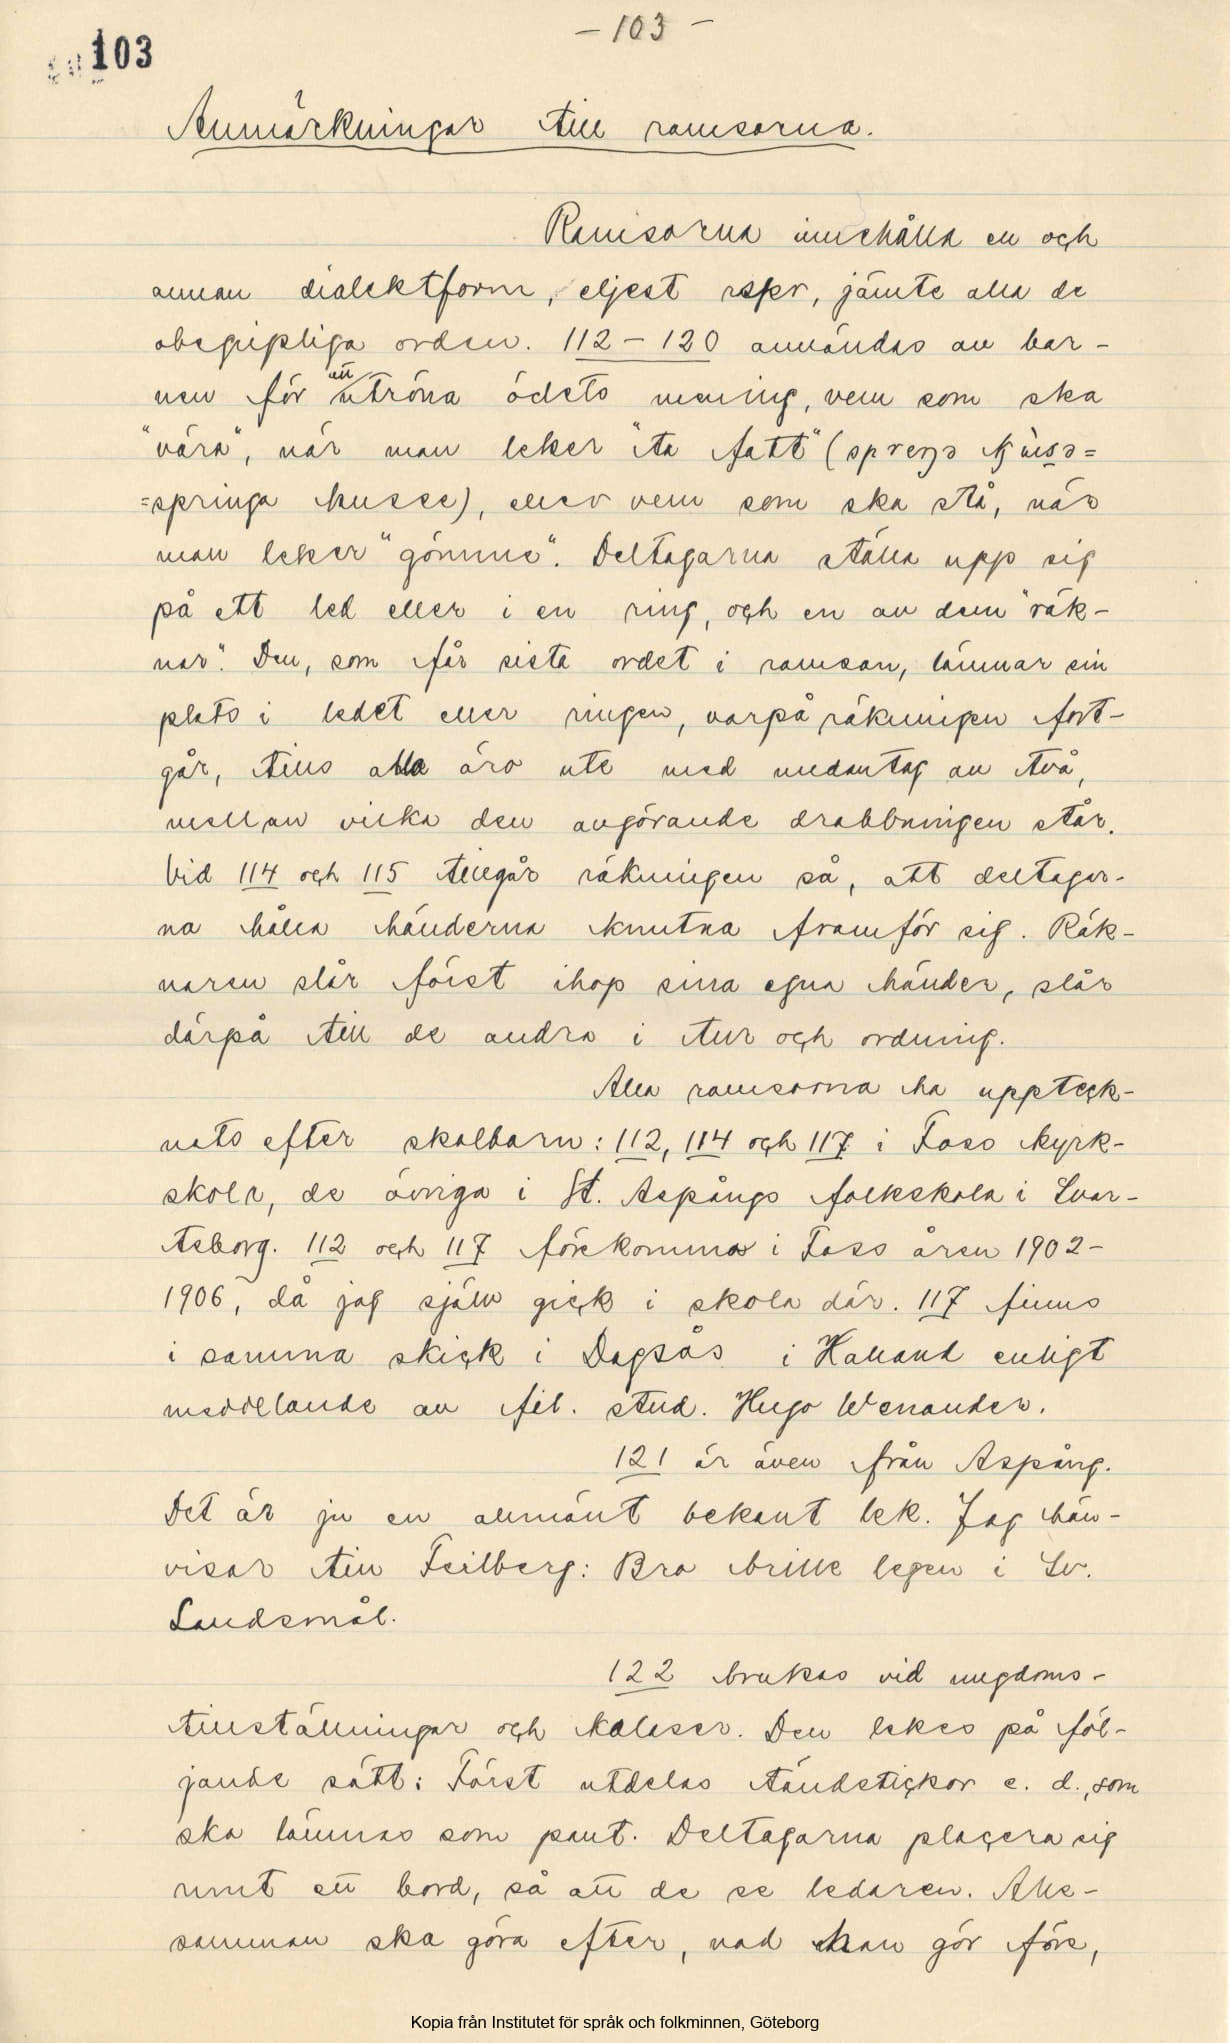 - 103 -
103
Anmärkningar till ramsorna.
Ramsorna innehålla en och
annan dialektform, eljest rspr, jämte alla de
obegripliga orden. 112 - 120 användas av bar-
nen för att utröna ödets mening, vem som ska
"vara", när man leker "ta fatt" (
=springa kusse), eller vem som ska stå, när
man leker "gömme". Deltagarna ställa upp sig
på ett led eller i en ring, och en av dem "räk-
nar". Den, som får sista ordet i ramsan, lämnar sin
plats i ledet eller ringen, varpå räkningen fort-
går, tills alla äro ute med undantag av två,
mellan vilka den avgörande drabbningen står.
Vid 114 och 115 tillgår räkningen så, att deltagar-
na hålla händerna knutna framför sig. Räk-
naren slår först ihop sina egna händer, slår
därpå till de andra i tur och ordning.
Alla ramsorna ha uppteck-
nats efter skolbarn: 112, 114 och 117 i Foss kyrk-
skola, de övriga i St. Aspångs folkskola i Svar-
teborg. 112 och 117 förekommo i Foss åren 1902-
1906, då jag själv gick i skola där. 117 finns
i samma skick i Dagsås i Halland enligt
meddelande av fil. stud. Hugo Wenander.
121 är även från Aspång.
Det är ju en allmänt bekant lek. Jag hän-
visar till Feilberg: Bro brille legen i Sv.
Landsmål.
122 brukas vid ungdoms-
tillställningar och kalaser. Den lekes på föl-
jande sätt: Först utdelas tändstickor e. d., som
ska lämnas som pant. Deltagarna placera sig
runt ett bord, så att de se ledaren. Alle-
samman ska göra efter, vad han gör före,
Kopia från Institutet för språk och folkminnen, Göteborg